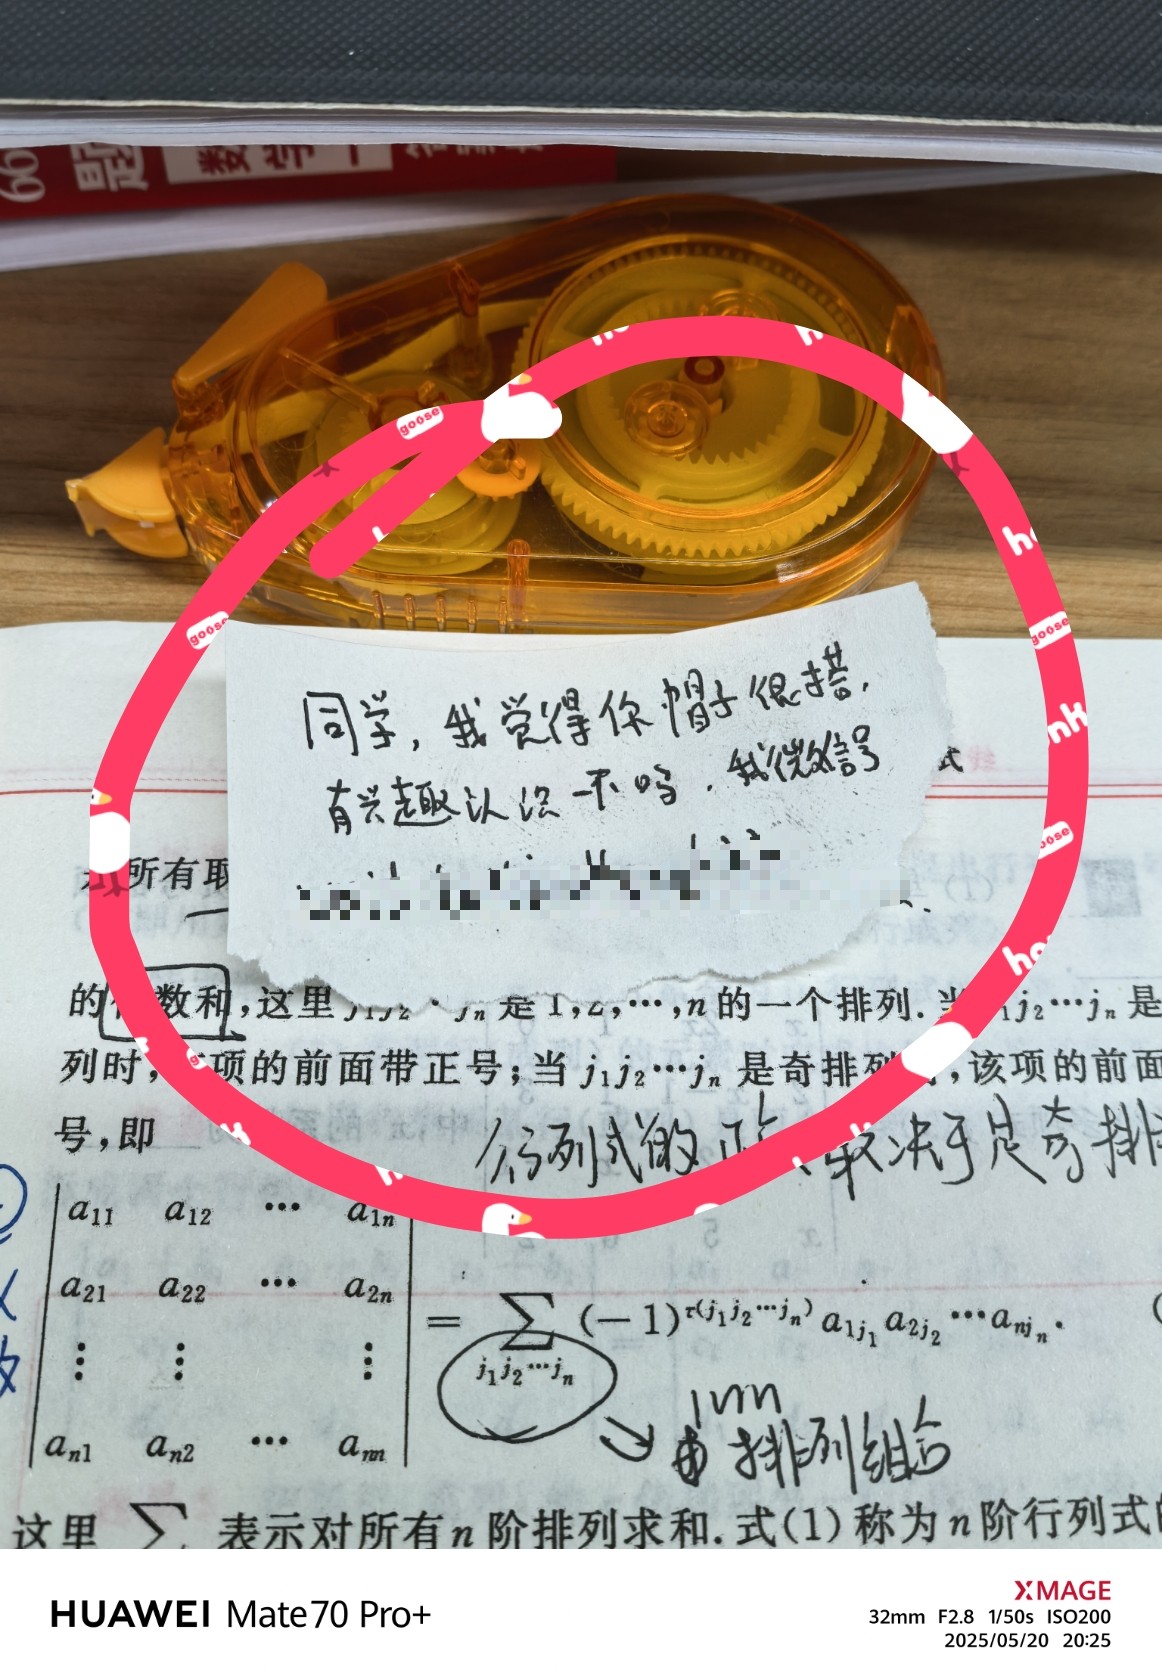 660
题
数学一
同学，我觉得你帽子很搭，
有兴趣认识一下吗．我微信号
式
所有取
的代数和，这里 j₁j₂ ⋯ jₙ 是 1,2,⋯,n 的一个排列．当 j₁j₂⋯jₙ 是
列时，该项的前面带正号；当 j₁j₂⋯jₙ 是奇排列，该项的前面
号，即
行列式的正负取决于是奇排
a₁₁ a₁₂ ⋯ a₁ₙ
a₂₁ a₂₂ ⋯ a₂ₙ
⋮ ⋮ ⋮
aₙ₁ aₙ₂ ⋯ aₙₙ
= ∑ (−1)^τ(j₁j₂⋯jₙ) a₁j₁ a₂j₂ ⋯ aₙjₙ.
j₁j₂⋯jₙ
排列组合
这里 ∑ 表示对所有 n 阶排列求和．式(1)称为 n 阶行列式的
goose
goose
goose
honk
HUAWEI Mate70 Pro+
XMAGE
32mm F2.8 1/50s ISO200
2025/05/20 20:25